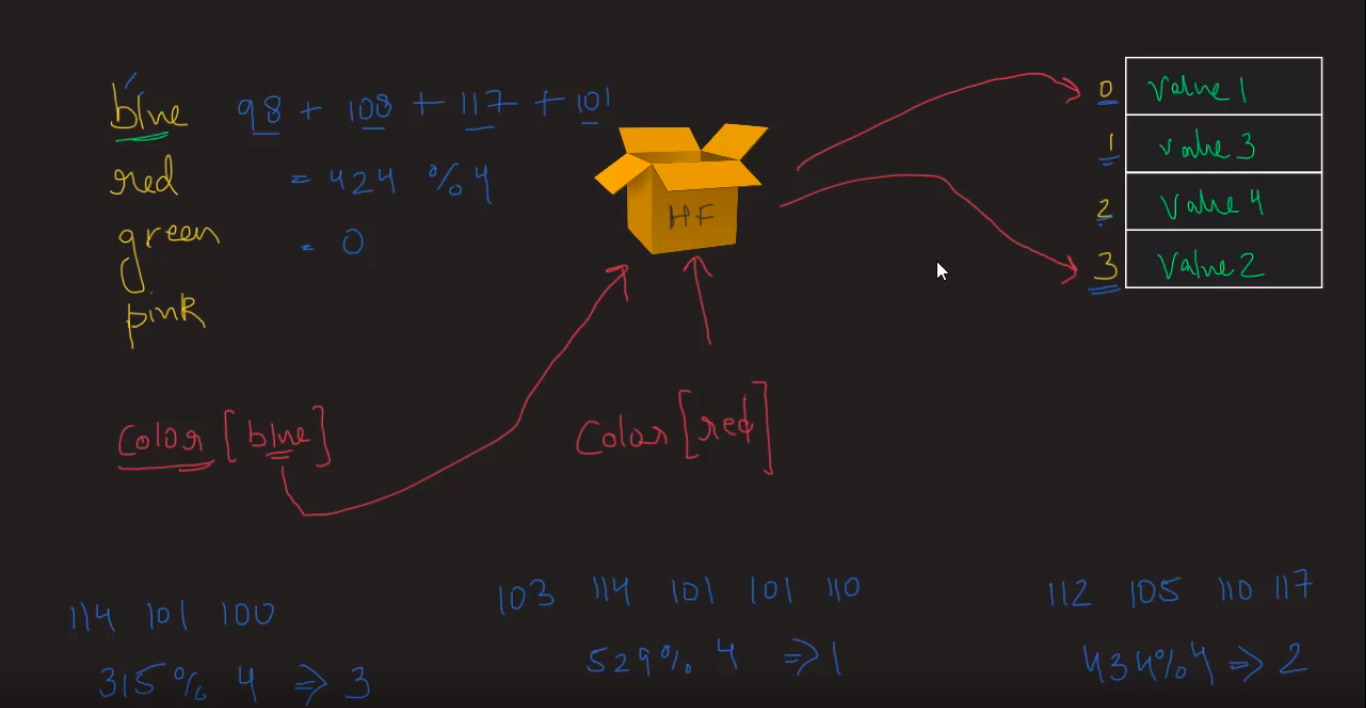 blue 98 + 108 + 117 + 101
red = 424 % 4
green = 0
pink
HF
0 value 1
1 value 3
2 value 4
3 value 2
Color [blue]
Color [red]
114 101 100
315 % 4 ⇒ 3
103 114 101 101 110
529 % 4 ⇒ 1
112 105 110 117
434 % 4 ⇒ 2